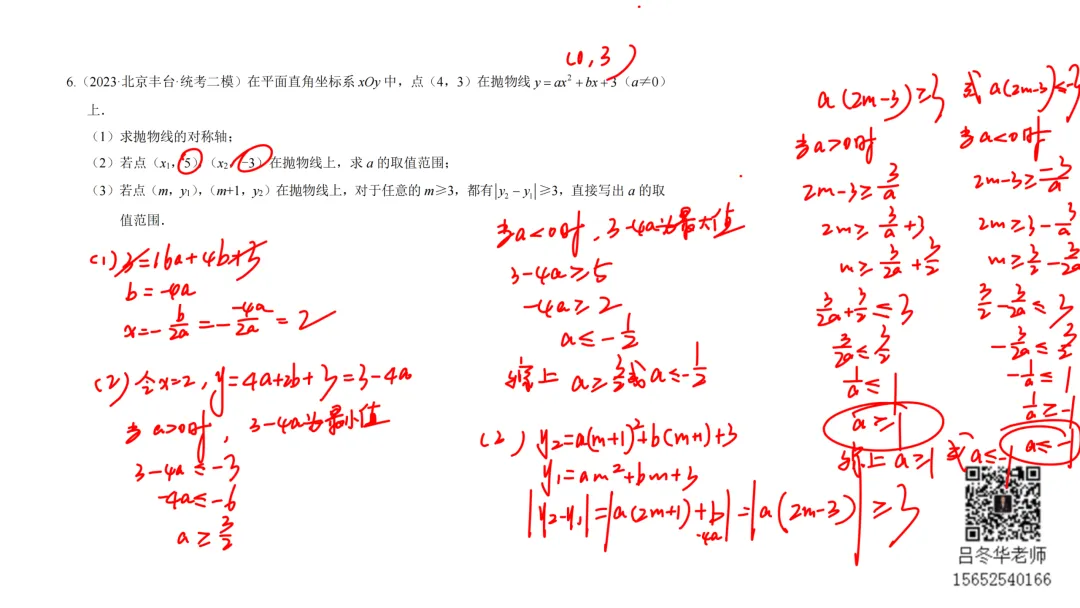 (0,3)
6.（2023·北京丰台·统考二模）在平面直角坐标系 xOy 中，点（4，3）在抛物线 y = ax² + bx + 3（a≠0）
上．
（1）求抛物线的对称轴；
（2）若点（x₁，5），（x₂，−3）在抛物线上，求 a 的取值范围；
（3）若点（m，y₁），（m+1，y₂）在抛物线上，对于任意的 m≥3，都有|y₂ − y₁|≥3，直接写出 a 的取
值范围．
(1) 3=16a+4b+3
b=-4a
x=-b/2a=--4a/2a=2
(2) 令x=2, y=4a+2b+3=3-4a
当 a>0时, 3-4a为最小值
3-4a≤-3
-4a≤-6
a≥3/2
当a<0时, 3-4a为最大值
3-4a≥5
-4a≥2
a≤-1/2
综上 a≥3/2或a≤-1/2
(3) y₂=a(m+1)²+b(m+1)+3
y₁=am²+bm+3
|y₂-y₁|=|a(2m+1)+b|=|a(2m-3)|≥3
-4a
a(2m-3)≥3
当a>0时
2m-3≥3/a
2m≥3/a+3
m≥3/2a+3/2
3/2a+3/2≤3
3/2a≤3/2
1/a≤1
a≥1
或 a(2m-3)≤-3
当a<0时
2m-3≥-3/a
2m≥3-3/a
m≥3/2-3/2a
3/2-3/2a≤3
-3/2a≤3/2
-1/a≤1
1/a≥-1
a≤-1
综上 a≥1 或a≤-1
吕冬华老师
15652540166